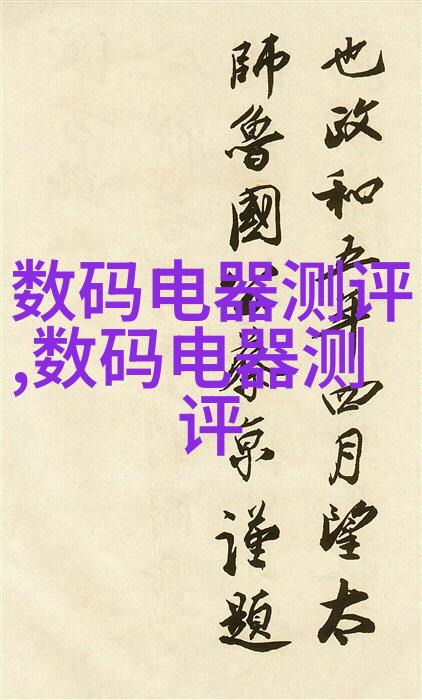 数码电器测评
,数码电器测
评
也政和五年四月望太
師魯國公蔡京謹題